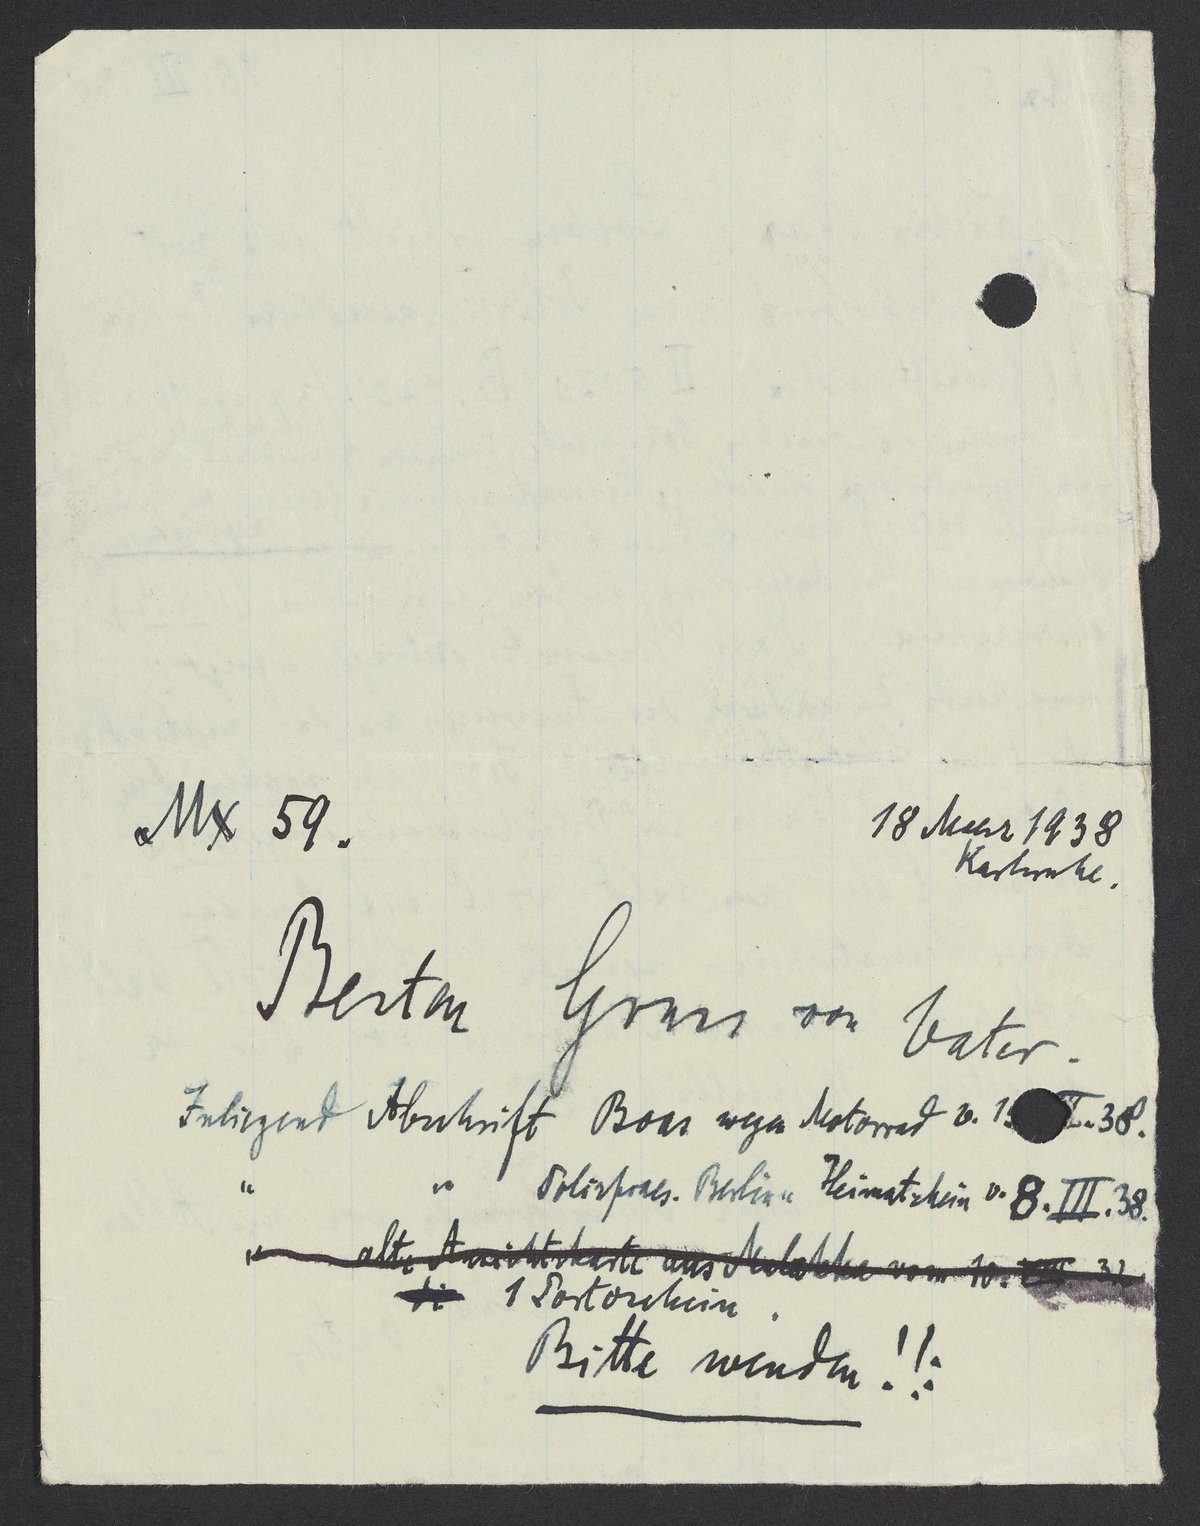 Mx 59.
18 Maerz 1938
Karlsruhe.
Besten Gruss von Vater.
Inliegend Abschrift Boas wegen Motorrad v. 38.
" " Polizpraes. Berlin " Heimatschein v. 8.III.38.
" alte Ansichtskarte aus Malakka vom 10. VIII 32
1 Portoschein.
Bitte wenden!!